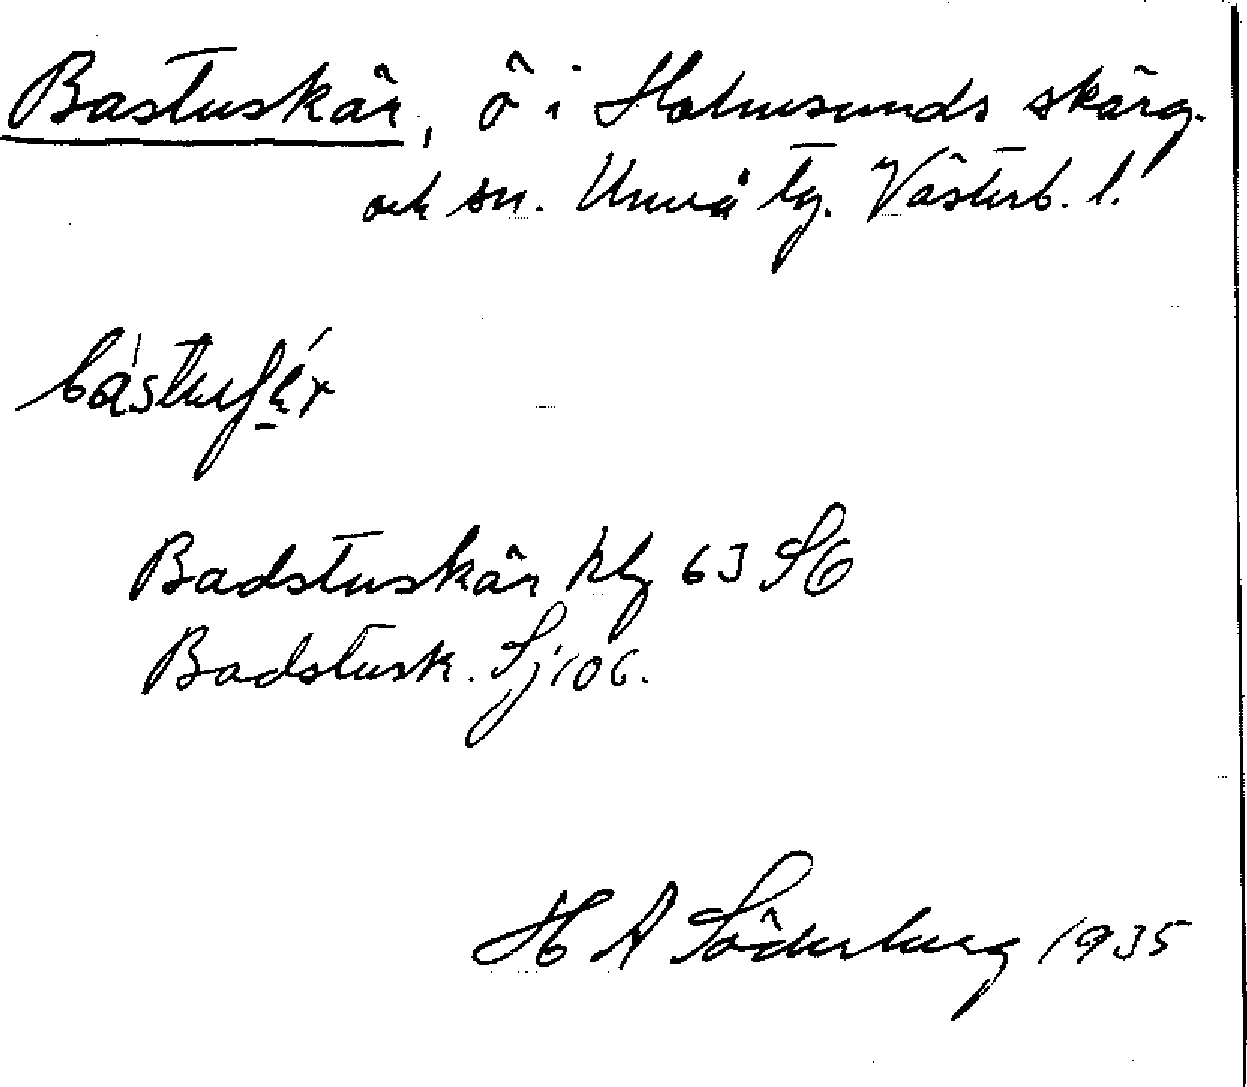 Bastuskär, ö i Holmsunds skärg.
och sn. Umeå tg. Västerb. l.
Badstuskär hlg 63 SÖ
Badstusk. Sj 106.
H A Söderberg 1935